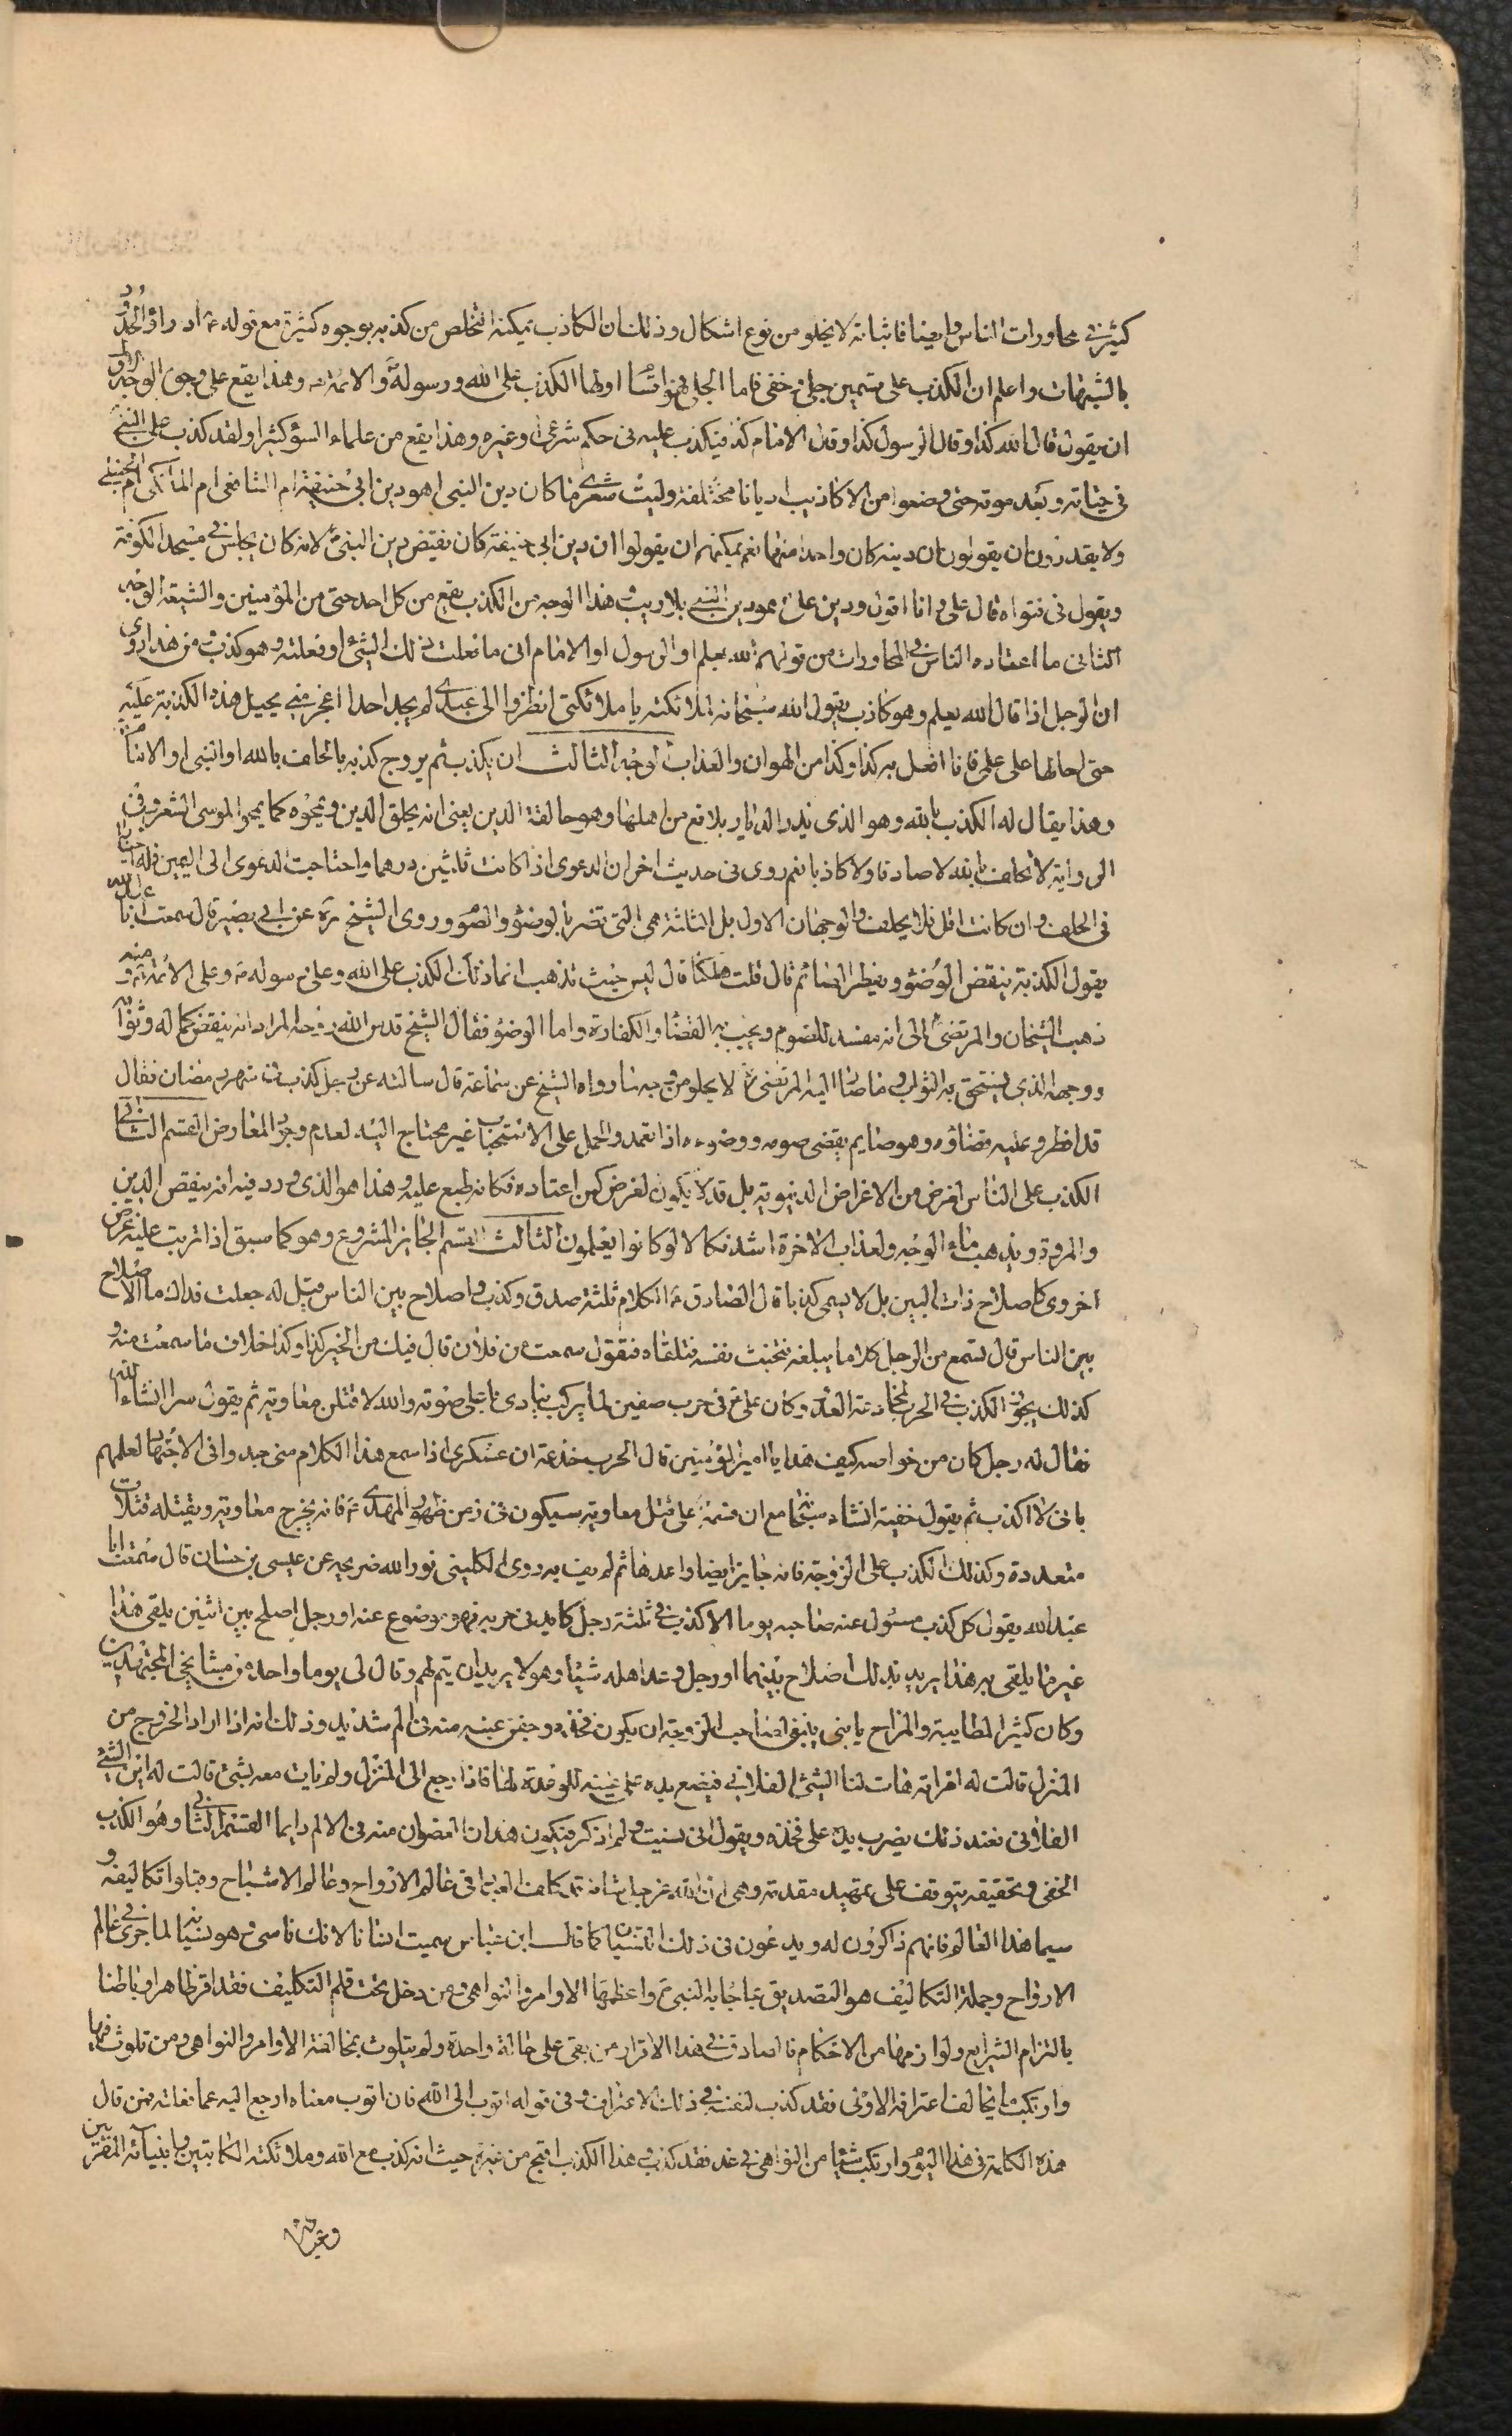 كثيرة في محاورات الناس وايضا فاثباته لا يخلو من نوع اشكال وذلك ان الكاذب يمكنه التخلص من كذبه بوجوه كثيرة مع قوله ع ادراؤا الحدود
بالشبهات واعلم ان الكذب على قسمين جلي وخفي فاما الجلي فهو اقسام اولها الكذب على الله ورسوله والائمة وهذا يقع على وجوه الوجه الاول
ان يقول قال الله كذا وقال الرسول كذا وقال الامام كذا فيكذب عليه في حكم شرعي او غيره وهذا يقع من علماء السؤ كثيرا ولقد كذب على النبي
في حياته وبعد موته حتى وضعوا من الاكاذيب اديانا مختلفة وليت شعري ما كان دين النبي اهو دين ابي حنيفة ام الشافعي ام المالكي ام الحنبلي
ولا يقدرون ان يقولون ان دينه كان واحدا منها نعم يمكنهم ان يقولوا ان دين ابي حنيفة كان نقيض دين النبي لانه كان يجلس في مسجد الكوفة
ويقول في فتواه قال علي وانا اقول ودين علي هو دين النبي بلا ريب وهذا الوجه من الكذب يقع من كل احد حتى من المؤمنين والشيعة الوجه
الثاني ما اعتاده الناس في المحاورات من قولهم الله يعلم او الرسول او الامام اني ما فعلت ذلك الشئ او فعلته وهو كذب من هذا روي
ان الرجل اذا قال الله يعلم وهو كاذب يقول الله سبحانه لملائكته يا ملائكتي انظروا الى عبدي لم يجد احدا اعجز مني يحيل هذه الكذبة عليه
حتى احالها على علمي فانا افعل به كذا وكذا من الهوان والعذاب الوجه الثالث ان يكذب ثم يروج كذبه بالحلف بالله او النبي او الامام
وهذا يقال له الكذب بالله وهو الذي يذر الديار بلاقع من اهلها وهو حالقة الدين يعني انه يحلق الدين ويمحوه كما يمحو الموسى الشعر وفي
الرواية لا تحلف بالله لا صادقا ولا كاذبا نعم روى في حديث اخر ان الدعوى اذا كانت ثلثين درهما واحتاجت الدعوى الى اليمين فله
في الحلف وان كانت اقل فلا يحلف والوجهان الاول بل الثلثة هي التي تضر بالوضؤ والصوم وروى الشيخ ره عن ابي بصير قال سمعت ابا عبد الله
يقول الكذبة ينقض الوضؤ ويفطر الصائم قال قلت هلكنا قال ليس حيث تذهب انما ذلك الكذب على الله وعلى رسوله ص وعلى الائمة ع ومنه
ذهب الشيخان والمرتضى الى انه مفسد للصوم ويجب به القضاء والكفارة واما الوضؤ فقال الشيخ قدس الله روحه المراد انه ينقض كماله وثوابه
ووجهه الذي يستحق به الثواب وما صار اليه المرتضى لا يخلو من وجه ما رواه الشيخ عن سماعة قال سالته عن رجل كذب في شهر رمضان فقال
قد افطر وعليه قضاؤه وهو صايم يقضي صومه ووضوءه اذا تعمد والحمل على الاستحباب غير محتاج اليه لعدم وجود المعارض القسم الثاني
الكذب على الناس لغرض من الاغراض الدنيوية بل قد لا يكون لغرض كمن اعتاده فكانه طبع عليه وهذا هو الذي ورد فيه انه ينقص الدين
والمروة ويذهب ماء الوجه ولعذاب الاخرة اشد نكالا لو كانوا يعلمون الثالث القسم الجايز المشروع وهو كما سبق اذا ترتب عليه غرض
اخروي كاصلاح ذات البين بل لا يسمى كذبا قال الصادق ع الكلام ثلثة صدق وكذب واصلاح بين الناس قيل له جعلت فداك ما الاصلاح
بين الناس قال تسمع من الرجل كلاما يبلغه فتخبث نفسه فتلقاه فتقول سمعت من فلان قال فيك من الخير كذا وكذا خلاف ما سمعت منه و
كذلك يجوز الكذب في الحرب لمخادعة العدو وكان علي ع في حرب صفين لما يركب ينادي باعلى صوته والله لاقتلن معاوية ثم يقول سرا انشاء الله
فقال له رجل كان من خواصه كيف هذا يا امير المؤمنين قال الحرب خدعة ان عسكري اذا سمع هذا الكلام مني جدوا في الاجتهاد لعلمهم
باني لا اكذب ثم يقول خفية انشاء مع ان قسمه على قتل معاوية سيكون في زمن ظهور المهدي ع فانه يخرج معاوية ويقتله قتلات
متعددة وكذلك الكذب على الزوجة فانه جايز ايضا واعدها ثم لم يف به روى الكليني نور الله ضريحه عن عيسى بن حسان قال سمعت ابا
عبد الله يقول كل كذب مسئول عنه صاحبه يوما الا كذب في ثلثة رجل كايد في حربه فهو موضوع عنه او رجل اصلح بين اثنين يلقى هذا
غير ما يلقى به هذا يريد بذلك اصلاح بينهما او رجل وعد اهله شيئا وهو لا يريد ان يتم لهم وقال لي يوما واحد من مشايخي المجتهدين
وكان كثير المطايبة والمزاح يا بني ينبغي لصاحب الزوجة ان يكون فخذه وجفن عينه منه في الم شديد وذلك انه اذا اراد الخروج من
المنزل قالت له امراته هات لنا الشئ الفلاني فيضع يده على عينه للوعدة لها فاذا رجع الى المنزل ولم يات معه بشئ قالت له اين الشئ
الفلاني فعند ذلك يضرب يده على فخذه ويقول اني نسيت ولم اذكر فيكون هذان العضوان منه في الالم دايما القسم الثاني وهو الكذب
الخفي وتحقيقه يتوقف على تمهيد مقدمة وهي ان الله عز جل شانه قد كلف العباد في عالم الارواح وعالم الاشباح وقبلوا تكاليفه و
سيما هذا العالم فانهم ذاكرون له ويدعون في ذلك النسيان كما قال ابن عباس سميت انسانا لانك ناسي وهو نسيانه لما جرى في عالم
الارواح وجملة التكاليف هو التصديق بما جاء به النبي ص واعظمها الاوامر والنواهي ومن دخل تحت قلم التكليف فقد اقر ظاهرا وباطنا
بالتزام الشرايع ولوازمها من الاحكام فالصادق في هذا الاقرار من بقى على حالة واحدة ولم يتلوث بمخالفة الاوامر والنواهي ومن تلوث فيها
وارتكب ما يخالف اعترافه الاول فقد كذب لنفسه في ذلك الاعتراف وفي قوله اتوب الى الله فان اتوب معناه ارجع اليه عما فات فمن قال
هذه الكلمة في هذا اليوم وارتكب شيئا من النواهي في غد فقد كذب وهذا الكذب اقبح من غيره حيث انه كذب مع الله وملائكته الكاتبين وانبيائه المقربين
وغيرهم